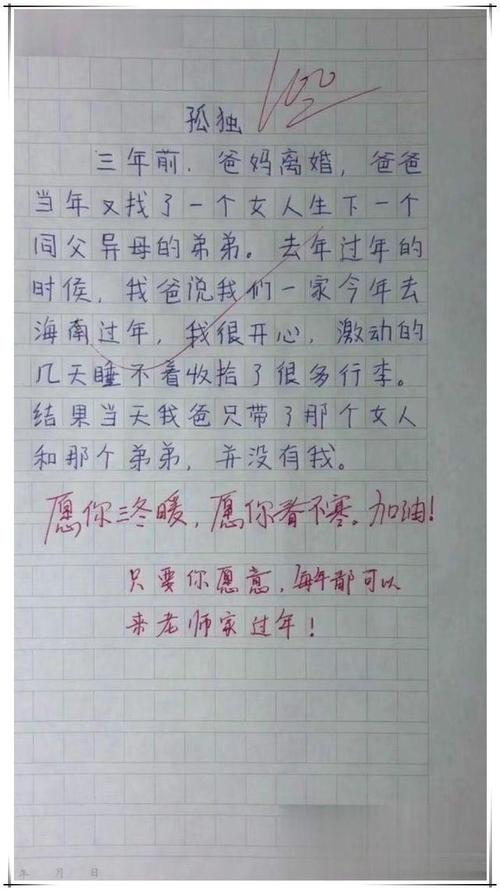 100
孤独
三年前.爸妈离婚，爸爸
当年又找了一个女人生下一个
同父异母的弟弟。去年过年的
时侯，我爸说我们一家今年去
海南过年，我很开心，激动的
几天睡不着收拾了很多行李。
结果当天我爸只带了那个女人
和那个弟弟，并没有我。
愿你三冬暖，愿你春不寒。加油！
只要你愿意，每年都可以
来老师家过年！
年 月 日